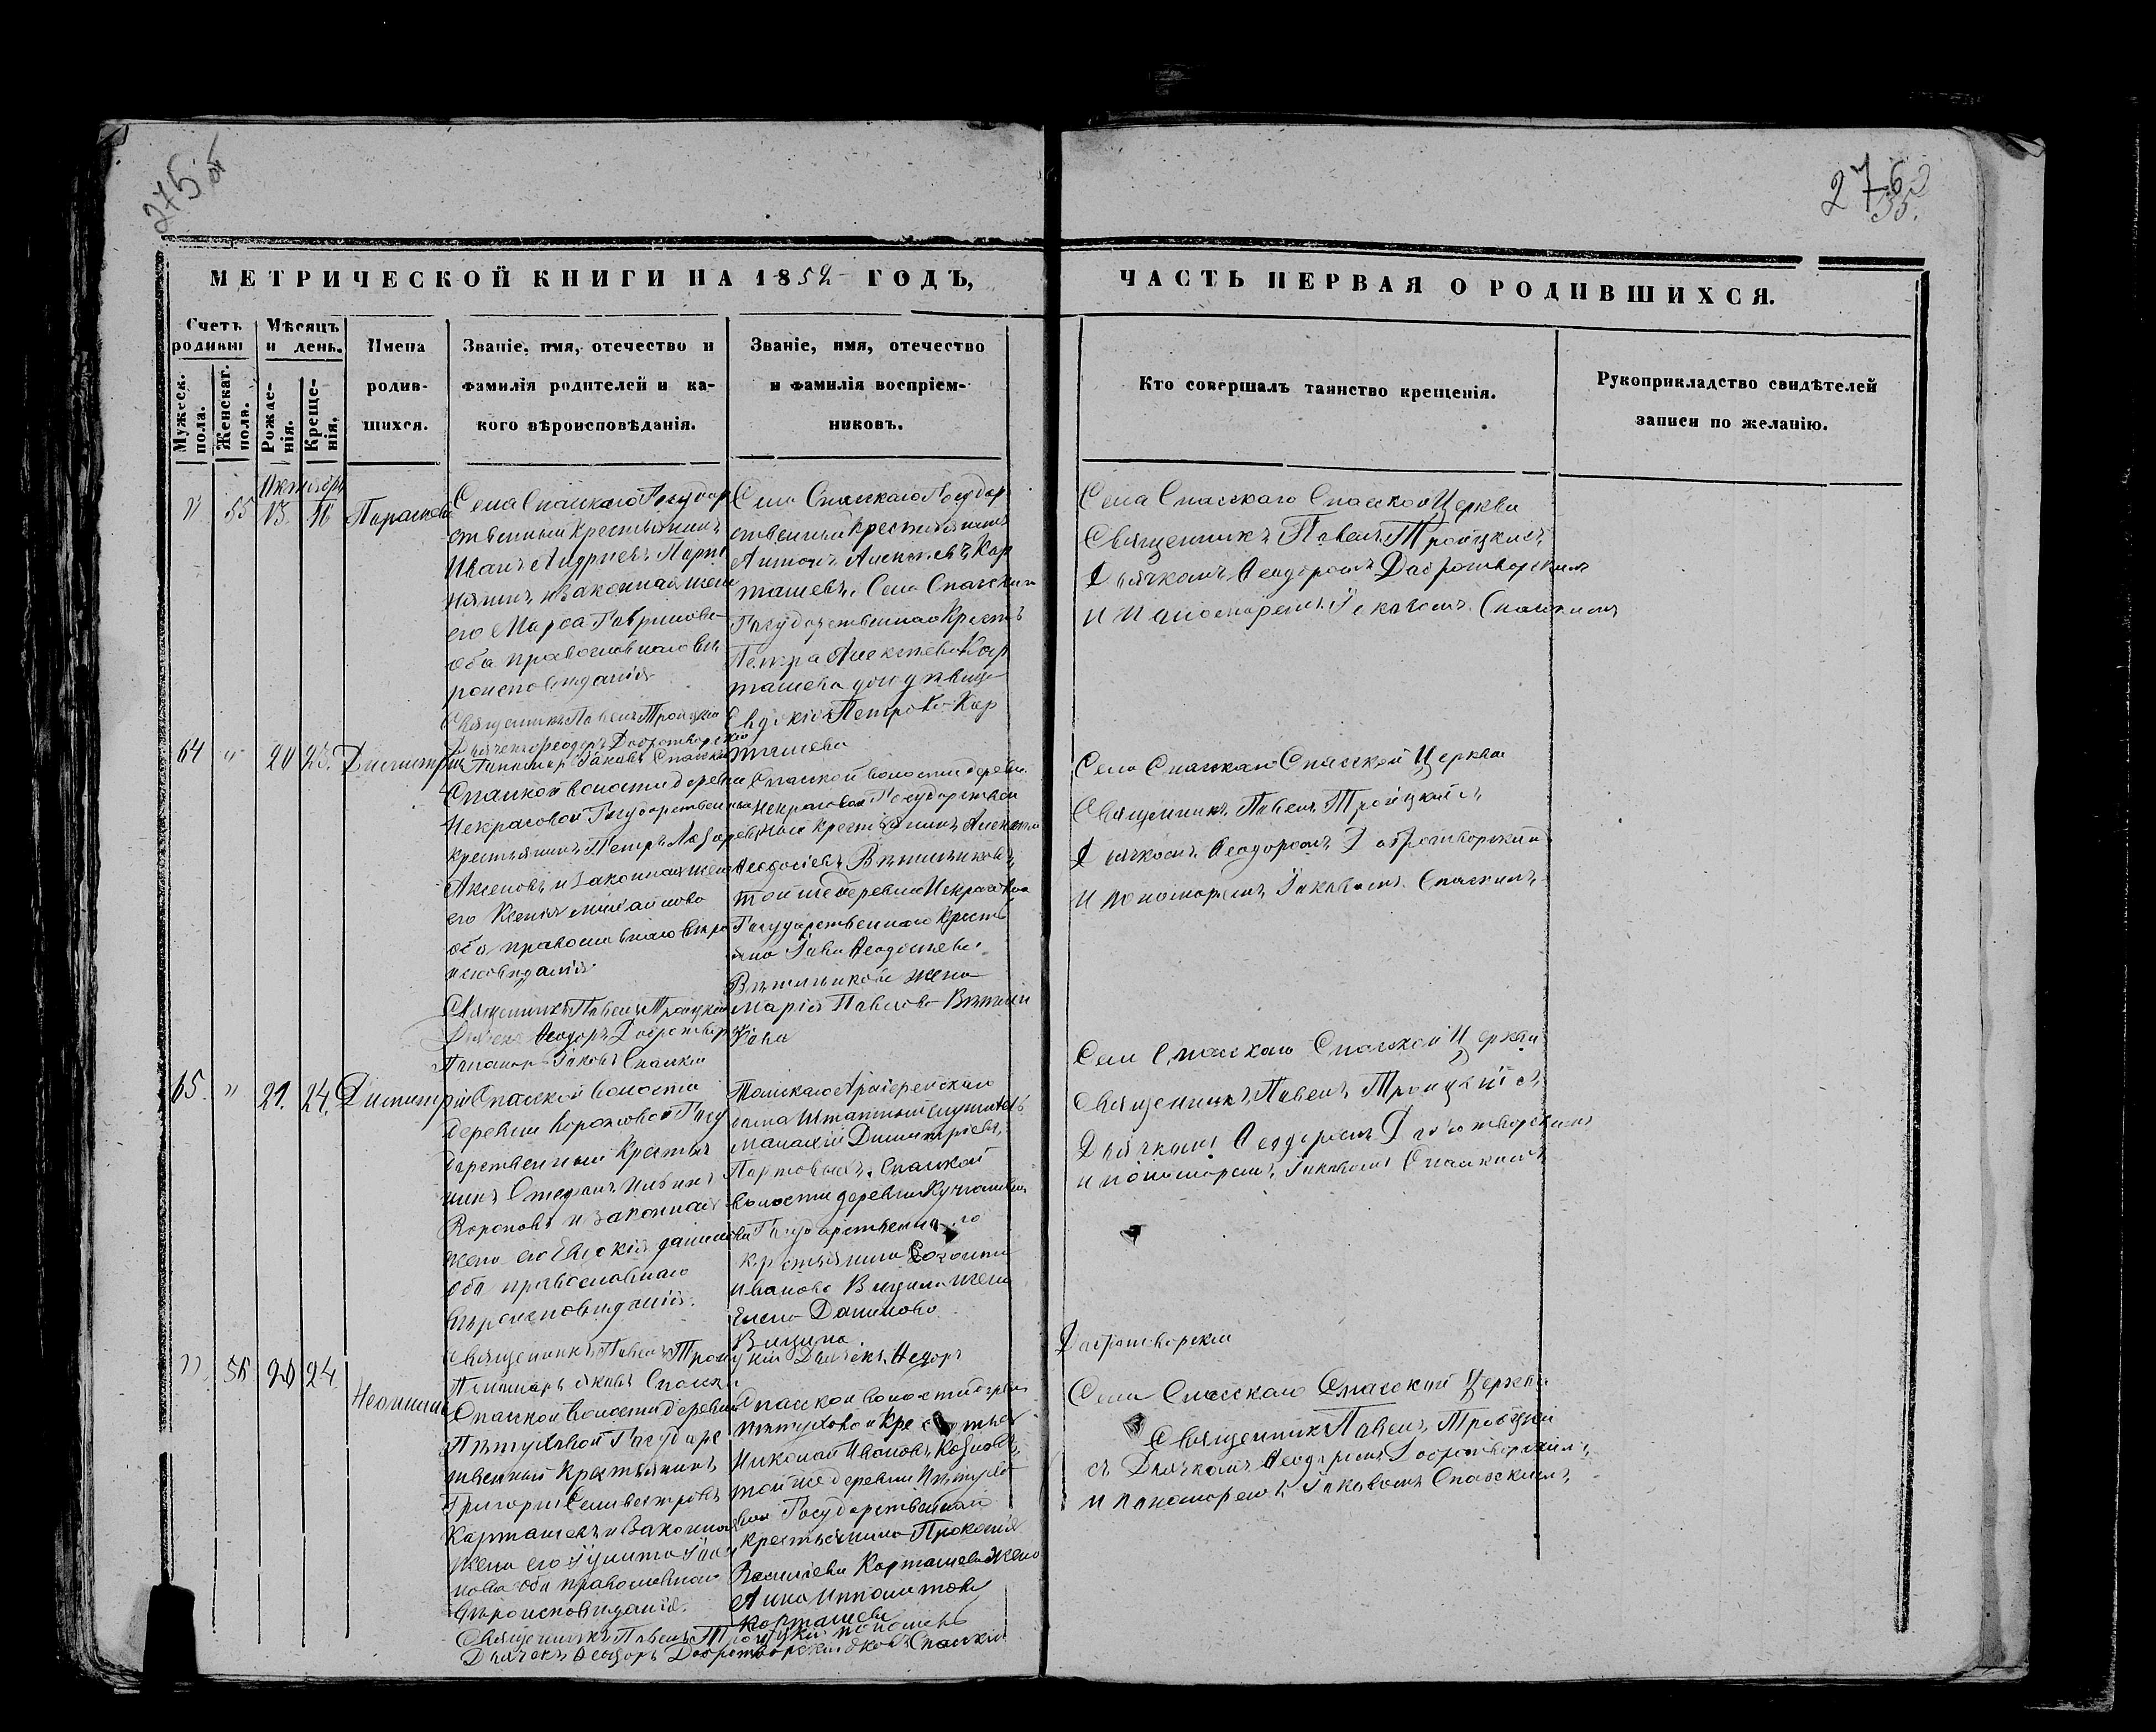 275 об
276
35.
МЕТРИЧЕСКОЙ КНИГИ НА 1852 ГОДЪ,
ЧАСТЬ ПЕРВАЯ О РОДИВШИХСЯ.
Счетъ родивш
Мѣсяцъ и день.
Мужеск. пола.
Женскаг. пола.
Рожде-нія.
Креще-нія.
Имена
родив-
шихся.
Званіе, имя, отечество и
фамилія родителей и ка-
кого вѣроисповѣданія.
Званіе, имя, отечество
и фамилія воспріем-
никовъ.
Кто совершалъ таинство крещенія.
Рукоприкладство свидѣтелей
записи по желанію.
Октябрь
" 55 13. 16 Параскева
Села Спаскаго Государ
ственный крестьянинъ
Иванъ Андриевъ
и законная жена
его Марѳа Гаврилова
оба православнаго вѣ
роисповѣданія
Священникъ Павелъ Троицкій
Дьячекъ Феодоръ Добротворскій
Пономарь Іаковъ Спаскій
Села Спаскаго Государ
ственный крестьянинъ
Антонъ Алексѣевъ Кар
ташевъ, Села Спаскаго
Государственнаго Кресть
Петра Алексѣева Кар
ташева дочь дѣвица
Евдокія Петрова Кар
ташева
Села Спасскаго Спасской Церкви
Священникъ Павелъ Троицкій съ
Дьячкомъ Ѳеодоромъ Добротворскимъ
и Пономаремъ Іаковомъ Спаскимъ
64 " 20 23. Димитрій
Спаской волости деревни
Некрасовой Государственный
крестьянинъ Петръ Лазаревъ
Аксеновъ и законная жена
его Ксенія Михайлова
оба православнаго вѣро
исповѣданія
Священникъ Павелъ Троицкій
Дьячекъ Ѳеодоръ Добротворскій
Пономарь Іаковъ Спаскій
Спаской волости деревни
Некрасовой Государствен
ный крестьянинъ Алексѣй
Ѳеодосіевъ
той же деревни Некрасовой
Государственнаго Кресть
жена
Марія Павлова
Села Спаскаго Спаской Церкви
Священникъ Павелъ Троицкій съ
Дьячкомъ Ѳеодоромъ Добротворскимъ
и пономаремъ Іаковомъ Спаскимъ
65. " 21. 24. Димитрій
Спаской волости
деревни Вороновой Госу
дарственный Крестья
нинъ Стефанъ Ильинъ
Вороновъ и законная
жена его Евдокія Данилова
оба православнаго
вѣроисповѣданія.
Священникъ Павелъ Троицкій Дьячекъ Ѳедоръ Добротворскій
Пономарь Яковъ Спаскій
Томскаго Архіерейскаго
дома Штатный служитель
Малахій Димитріевъ
Портовыхъ. Спаской
волости деревни
Государственнаго
крестьянина
Иванова Вицина жена
Елена Данилова
Вицина
Села Спасскаго Спаской Церкви
Священникъ Павелъ Троицкій съ
Дьячкомъ Ѳеодоромъ Добротворскимъ
и пономаремъ Іаковомъ Спаскимъ
" 56 20 24 Неонила
Спаской волости деревни
Пѣтуховой Государс
твенный Крестьянинъ
Григорій Селивестровъ
Карташевъ и законная
жена его Іулита
оба православнаго
вѣроисповѣданія.
Священникъ Павелъ Троицкій пономарь
Дьячекъ Ѳеодоръ Добротворскій Яковъ Спаскій
Спаской волости деревни
Пѣтуховой
Николай Ивановъ Козловъ,
той же деревни Пѣтухо
вой Государственнаго
крестьянина Прокопія
Васильева Карташева жена
Анна Ипполитова
Карташева
Села Спасскаго Спасской Церкви
Священникъ Павелъ Троицкій
съ Дьячкомъ Ѳеодоромъ Добротворскимъ
и пономаремъ Іаковомъ Спаскимъ